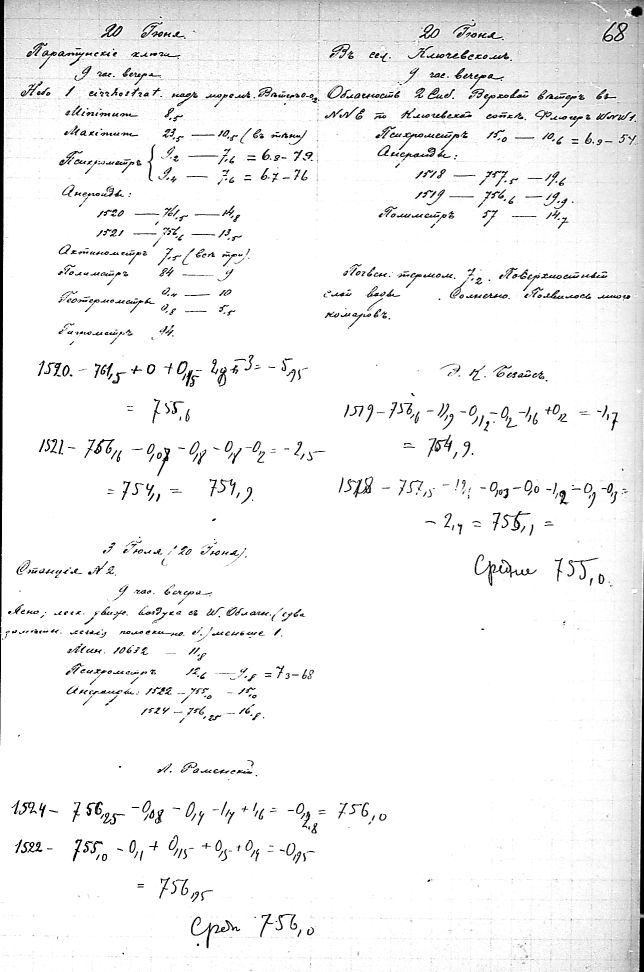 68
20 Іюня.
Паратунскіе ключи.
9 час. вечера.
Небо 1 cirrhostrat. надъ моремъ.
Minimum 8,5
Maximum 23,5 — 10,5 (въ тѣни)
Психрометръ 9,2 — 7,6 = 6.9 – 79.
9,4 — 7,6 = 6.7 – 76
Анероиды:
1520 — 761,5 — 14,8
1521 — 756,6 — 13,5
Актинометръ 7,5 (всѣ три).
Полиметръ 84 — 9
Геотермометры 0,4 — 10
0,8 — 5,5
Гигрометръ 94.
1520. – 761,5 + 0 + = – 5,95
= 755,6
1521 – 756,6 – – 0,8 – 0,8 – 0,2 = – 2,5
= 754,1 = 754,9.
3 Іюля (20 Іюня).
Станція N 2.
9 час. вечера.
Ясно; легк. движ. воздуха съ W. Облачн. (едва
замѣтн. легкія полоски на) меньше 1.
Мин. 10632 — 11,8
Психрометръ 12,6 — 9,8 = 7,3 – 68
Анероиды: 1522 – 755,0 – 15,0
1524 – 756,25 – 16,8.
Л. Раменскій.
1524 – 756,25 – 0,08 – 0,4 – 1,4 + 1,6 = = 756,0
1522 – 755,0 – 0,1 + 0,15 + 0,5 + 0,4 = – 0,95
= 756,95
Средн 756,0
20 Іюня.
Въ сел. Ключевскомъ.
9 час. вечера
Облачность 2 Cub. Верховой вѣтеръ въ
NNE по Ключевской сопкѣ. Флюгеръ WNW 1.
Психрометръ 15,0 — 10,6 = 6.9 – 54.
Анероиды:
1518 — 757,5 — 19,6
1519 — 756,6 — 19,9.
Полиметръ 57 — 14,7
Почвен. термом. 7,2. Поверхностный
слой воды . Солнечно. Появилось много
комаровъ.
Э. К. Безайсъ.
1519 – 756,6 – 0,12 – 0,2 – 1,6 + 0,12 = – 1,7
= 754,9.
1518 – 757,5 – 0,03 – 0,0 – 1,2 – 0,9 – 0,3 =
– 2,4 = 755,1 =
Средне 755,0.